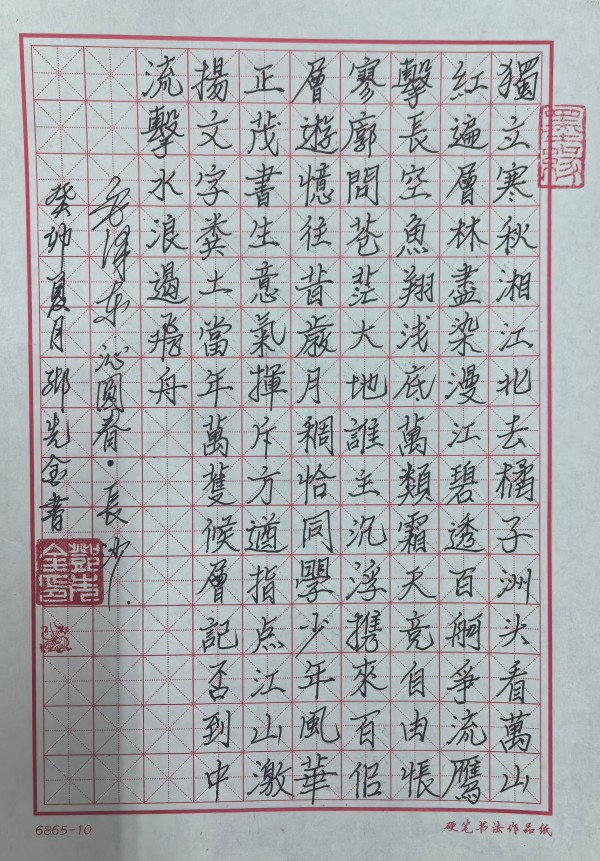 獨立寒秋湘江北去橘子洲头看萬山
紅遍層林盡染漫江碧透百舸爭流鷹
擊長空魚翔浅底萬類霜天竞自由悵
寥廓問苍茫大地誰主沉浮携來百侣
層遊憶往昔歲月稠恰同學少年風華
正茂書生意氣揮斥方遒指点江山激
揚文字粪土當年萬候層記否到中
流擊水浪遏飛舟
毛泽东·沁園春·長沙
癸卯夏月 鄧先金書
6865-10
硬笔书法作品纸